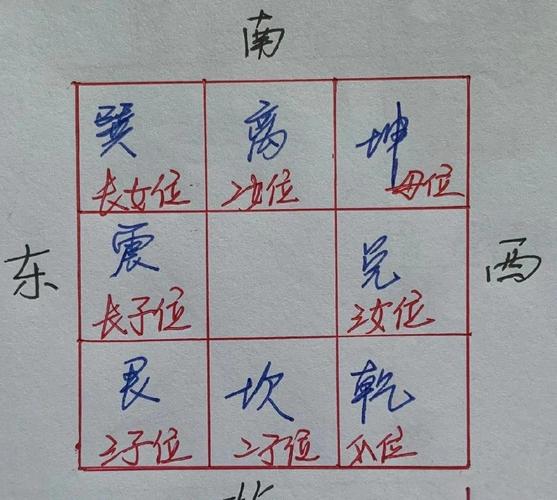 南
巽 离 坤
长女位 二女位 母位
东 震 兑 西
长子位 三女位
艮 坎 乾
三子位 二子位 父位